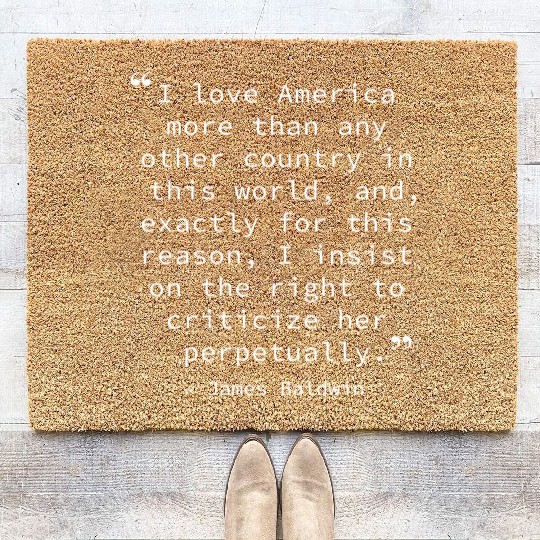 “I love America
more than any
other country in
this world, and,
exactly for this
reason, I insist
on the right to
criticize her
perpetually.”
- James Baldwin